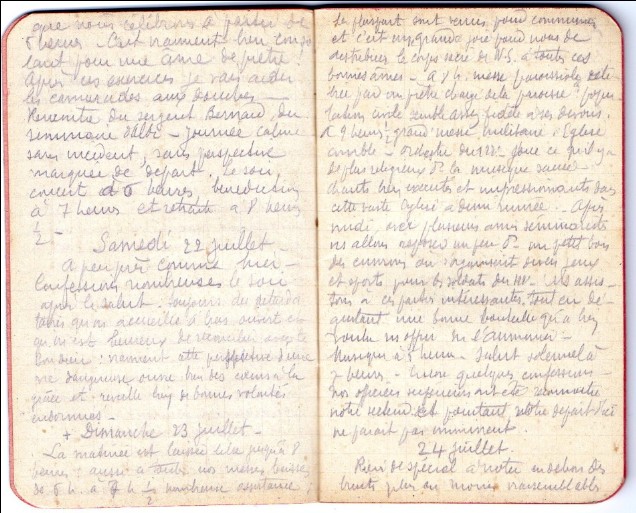 que nous célébrons à partir de
6 heures - C'est vraiment bien conso
lant pour une âme de prêtre !
Après ces exercices je vais aider
les camarades aux douches -
Rencontre du sergent Bernard, du
séminaire d'Albi - Journée calme
sans incident, sans perspective
marquée de départ. Le soir,
concert à 6 heures, bénédiction
à 7 heures et retraite à 8 heures
1/2 -
Samedi 22 juillet -
A peu près comme hier -
Confessions nombreuses le soir
après le salut. Toujours des retarda
taires qu'on accueille à bras ouverts et
qu'on est heureux de réconcilier avec le
bon Dieu : vraiment cette perspective d'une
vie dangereuse ouvre bien des cœurs à la
grâce et réveille bien de bonnes volontés
endormies -
+ Dimanche 23 juillet -
La matinée est laissée libre jusqu'à 8
heures : aussi à toutes nos messes basses
de 6 h. à 7 h 1/2 nombreuse assistance ;
La plupart sont venus pour communier
et c'est une grande joie pour nous de
distribuer le corps sacré de N.S. à toutes ces
bonnes âmes - A 8 h. messe paroissiale célé
brée par un prêtre chargé de la paroisse : popu
lation civile semble assez fidèle à ses devoirs.
A 9 heures, grand'messe militaire : Eglise
comble - orchestre du joue ce qu'il y a
de plus religieux de la musique sacrée -
chants bien exécutés et impressionnants dans
cette vaste Eglise à demi ruinée - Après
midi, avec plusieurs amis séminaristes
ns allons reposer un peu ds un petit bois
des environs où s'organisent divers jeux
et sports pour les soldats du - Ns assis-
tons à ces parties intéressantes, tout en dé-
gustant une bonne bouteille qu'a bien
voulu ns offrir Mr l'Aumônier -
Musique à 5 heures - Salut solennel à
7 heures - Encore quelques confessions -
nos officiers supérieurs ont été reconnaître
notre secteur et pourtant notre départ d'ici
ne paraît pas imminent.
24 juillet.
Rien de spécial à noter en dehors des
bruits plus ou moins vraisemblables